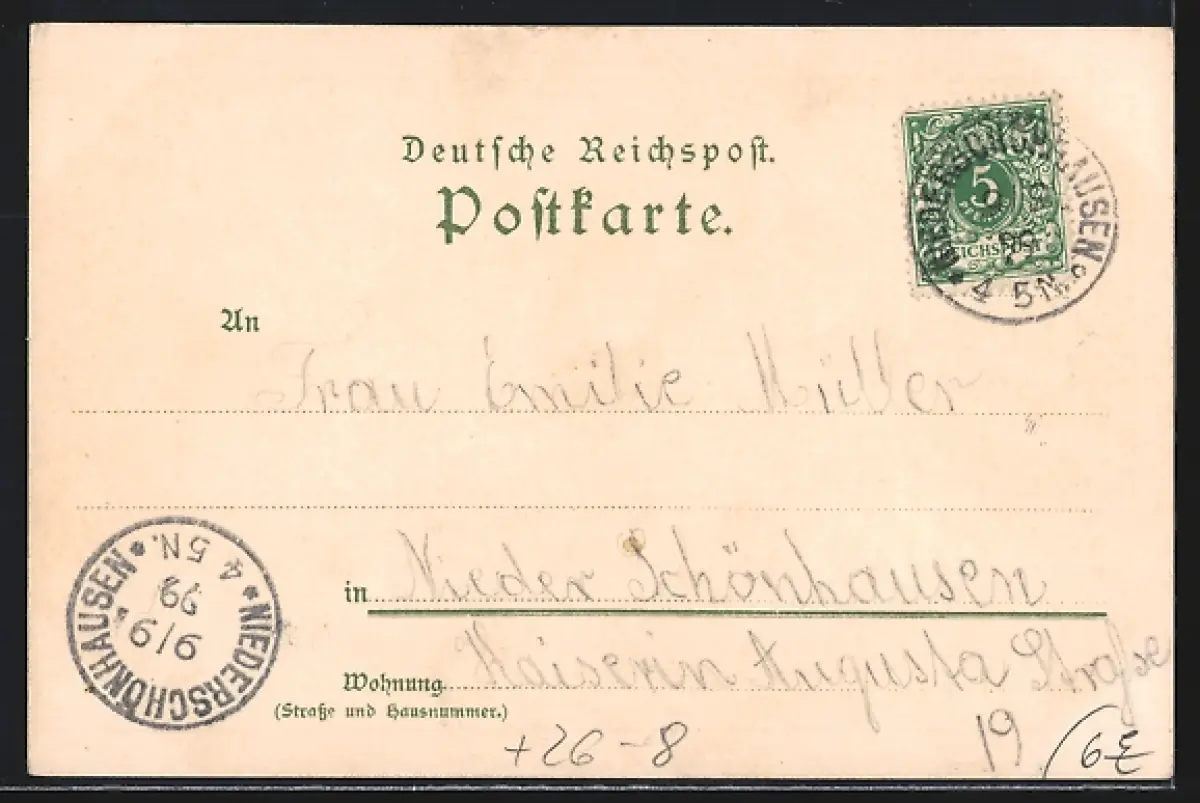 Deutsche Reichspost.
Postkarte.
5
REICHSPOST
NIEDERSCHÖNHAUSEN
4 5N.
An
Frau Emilie Müller
in Nieder Schönhausen
Wohnung Kaiserin Augusta Straße
(Straße und Hausnummer.)
19
NIEDERSCHÖNHAUSEN
9/9
99
4 5N.
+26-8